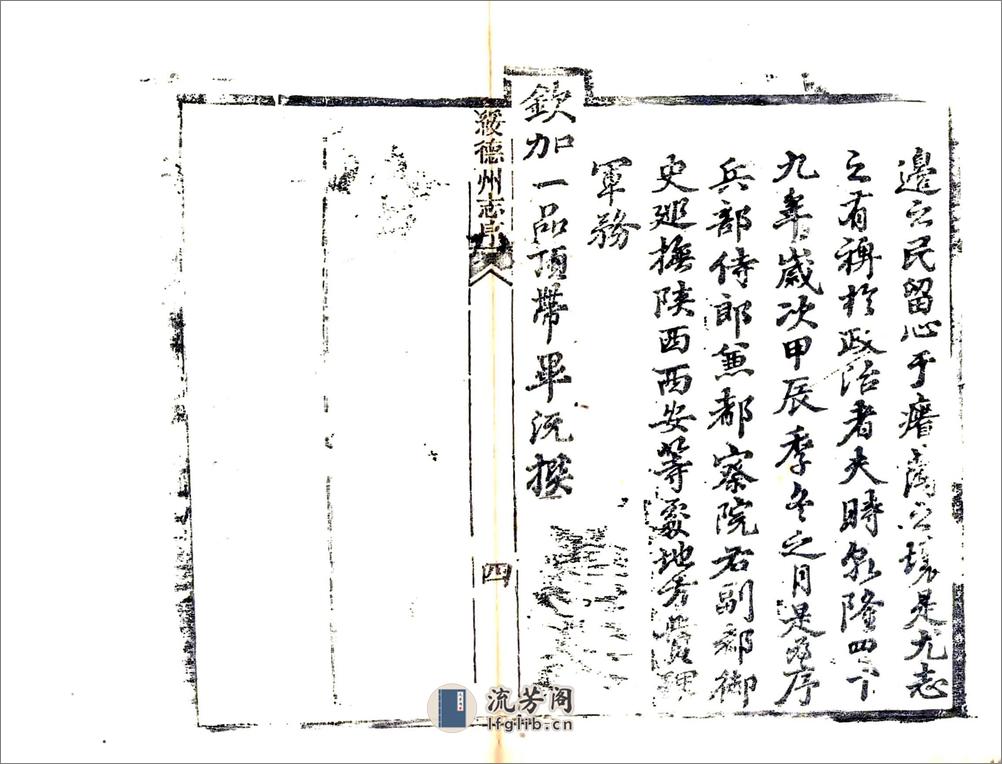 邊之民留心于瘠薄之壤是尤志
之有裨於政治者夫時乾隆四十
九年歲次甲辰季冬之月是為序
兵部侍郎兼都察院右副都御
史廵撫陝西西安等處地方贊理
軍務
欽加一品頂帶畢沅撰
綏德州志序
四
流芳阁
lfglib.cn